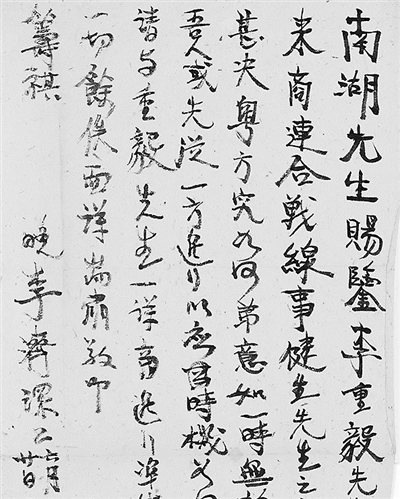 南湖先生賜鑒李重毅先
来商連合戰線事健生先生之
甚决粤方究如何弟意如一時無
吾人或先從一方進行以應時機如
請与重毅先生一詳商進行準
一切餘俟面詳耑肅敬叩
籌祺
晚李濟深上六月廿日